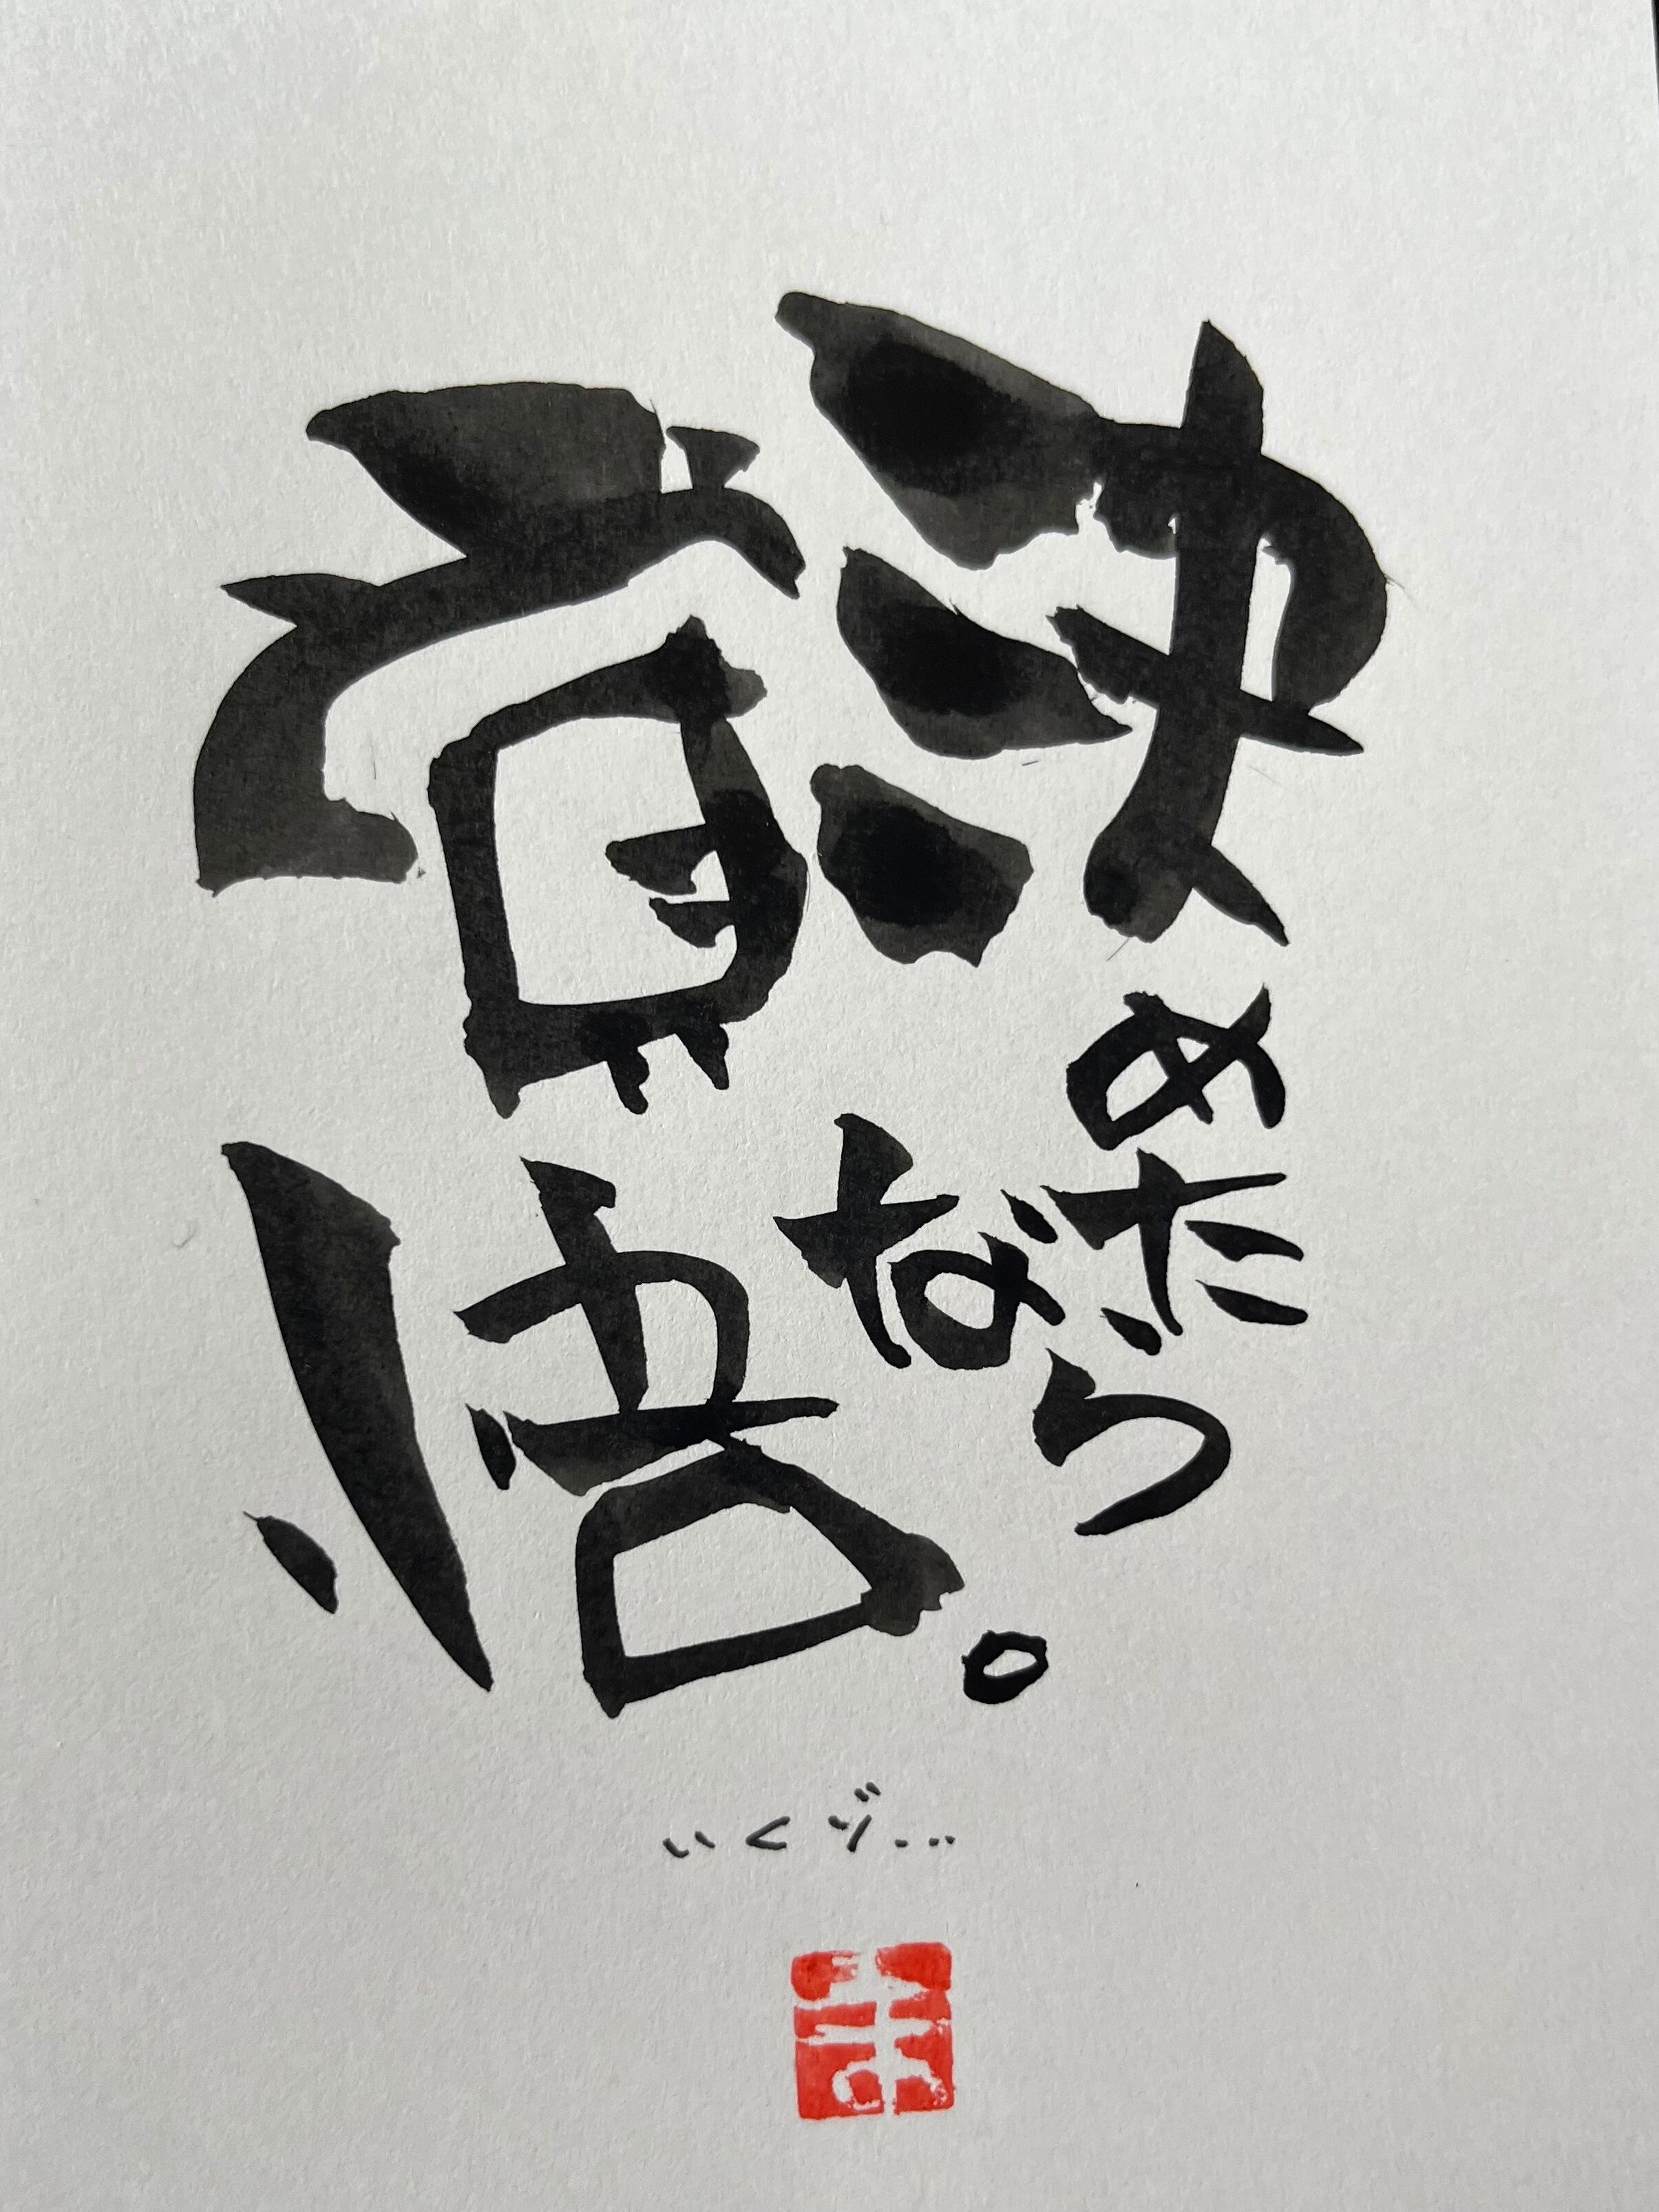 決めたなら
覚悟。
いくゾ...